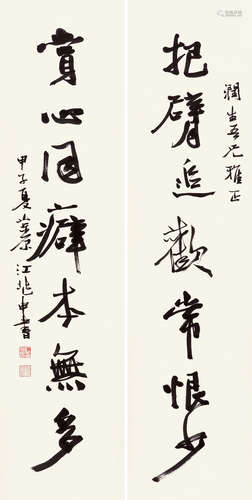 潤生吾兄雅正
把臂追歡常恨少
賞心同癖本無多
甲子夏茮原江兆申書